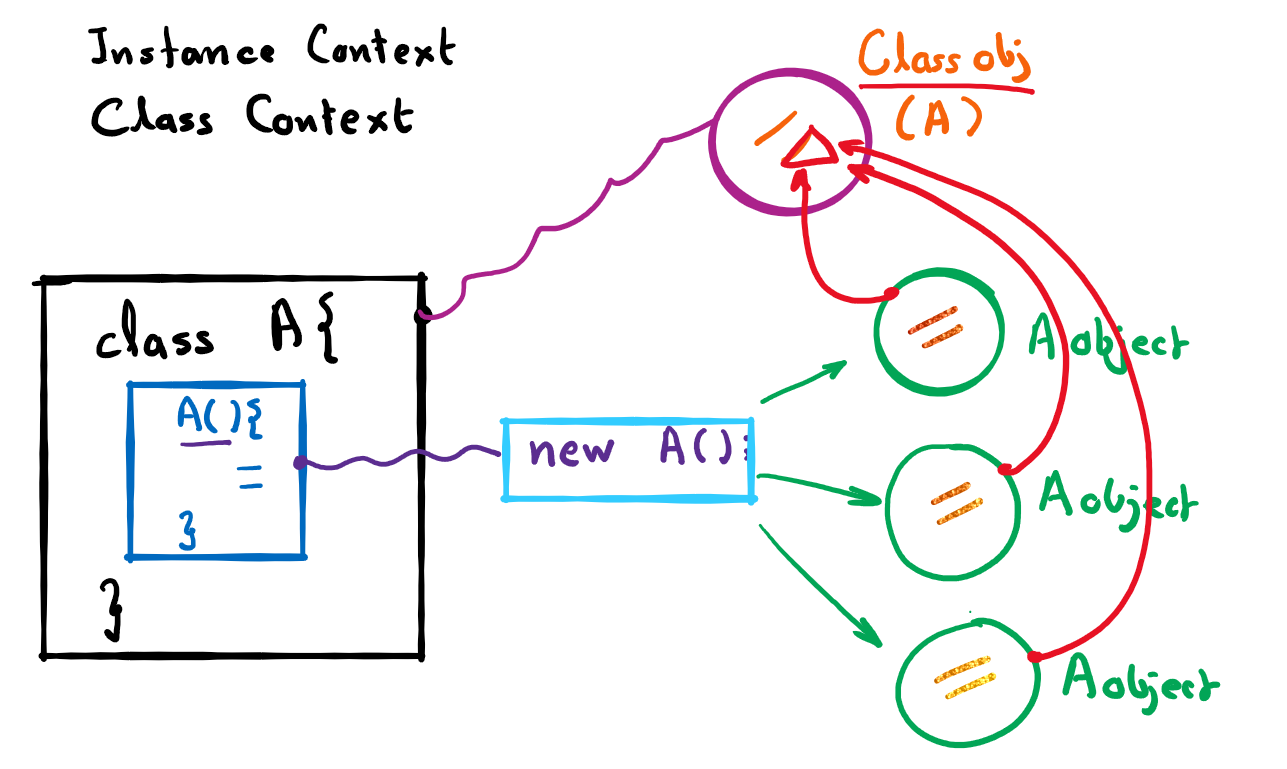 Instance Context
Class Context
Class obj
(A)
class A{
A(){
=
}
}
new A();
A object
A object
A object